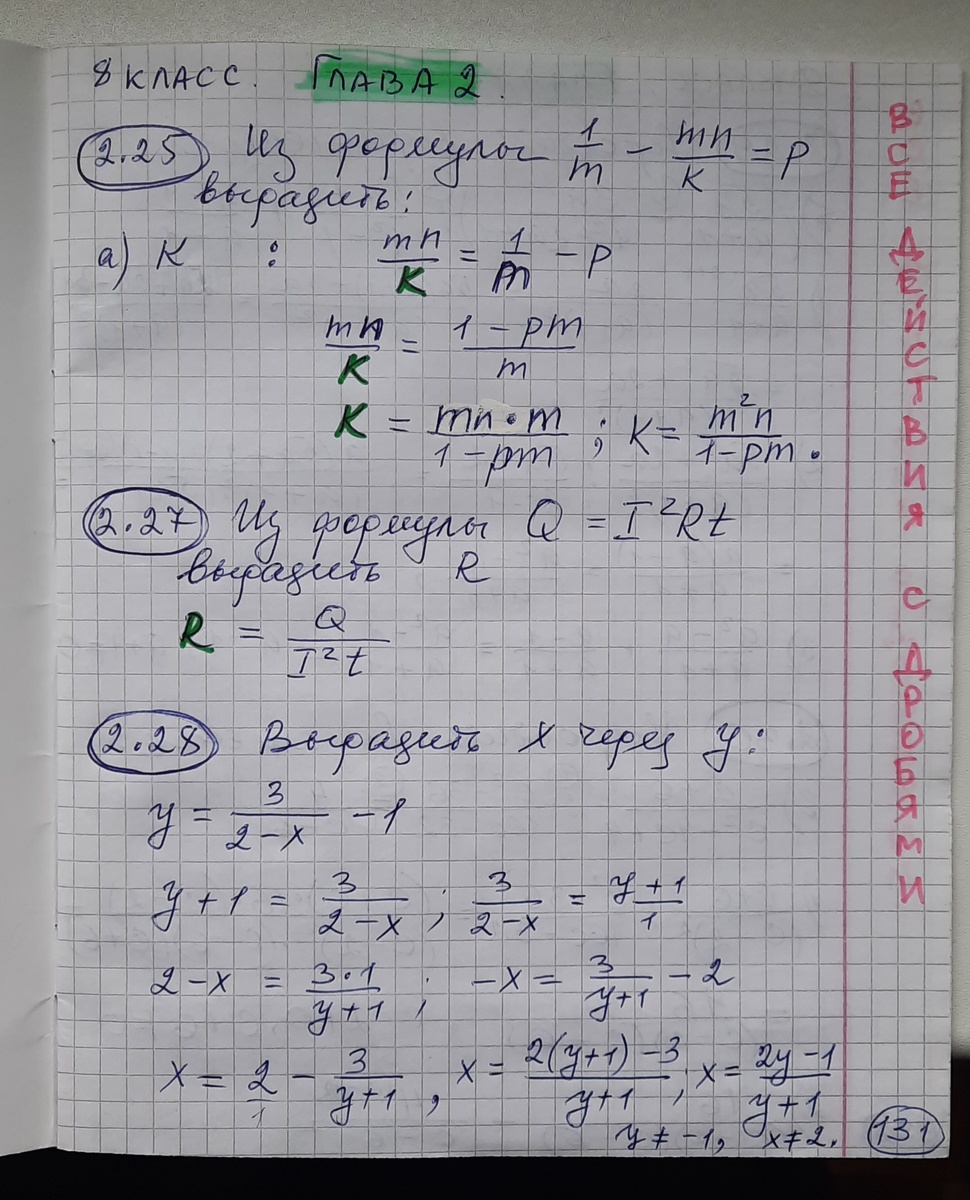 8 КЛАСС. ГЛАВА 2.
2.25 Из формулы 1/m - mn/k = p
выразить:
а) K : mn/K = 1/m - p
mn/K = (1 - pm)/m
K = (mn·m)/(1 - pm) ; K = m²n/(1 - pm).
2.27 Из формулы Q = I²Rt
выразить R
R = Q/(I²t)
2.28 Выразить x через y:
y = 3/(2-x) - 1
y + 1 = 3/(2-x) ; 3/(2-x) = (y+1)/1
2-x = (3·1)/(y+1) ; -x = 3/(y+1) - 2
x = 2/1 - 3/(y+1) , x = (2(y+1) - 3)/(y+1) ; x = (2y-1)/(y+1)
y ≠ -1, x ≠ 2.
131
ВСЕ ДЕЙСТВИЯ С ДРОБЯМИ